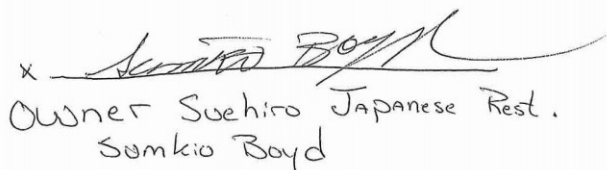 x Sumiko Boyd
Owner Suehiro Japanese Rest.
Sumkio Boyd